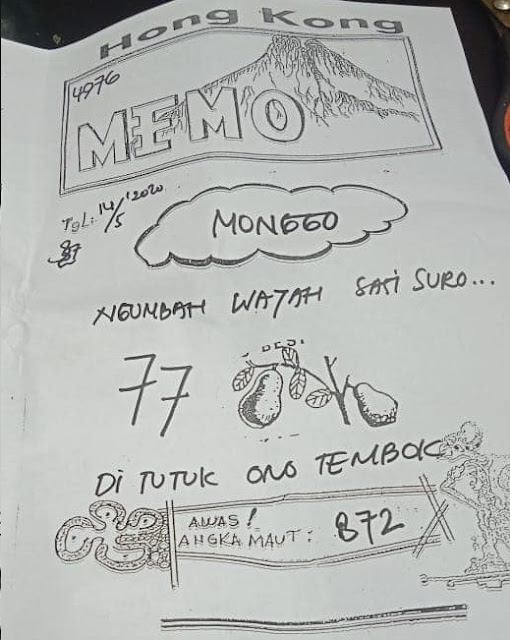 Hong Kong
4976
MEMO
TgL: 14/5 '2020
87
MONGGO
NGUMBAH WAJAH SASI SURO...
77
Di TUTUK ONO TEMBOK
AWAS!
ANGKA MAUT: 872